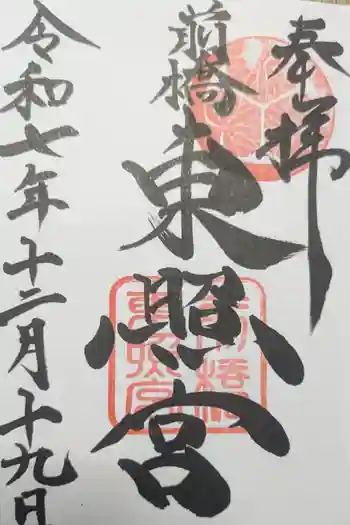 奉拝
前橋
東照宮
令和七年十二月十九日
前橋
東照宮